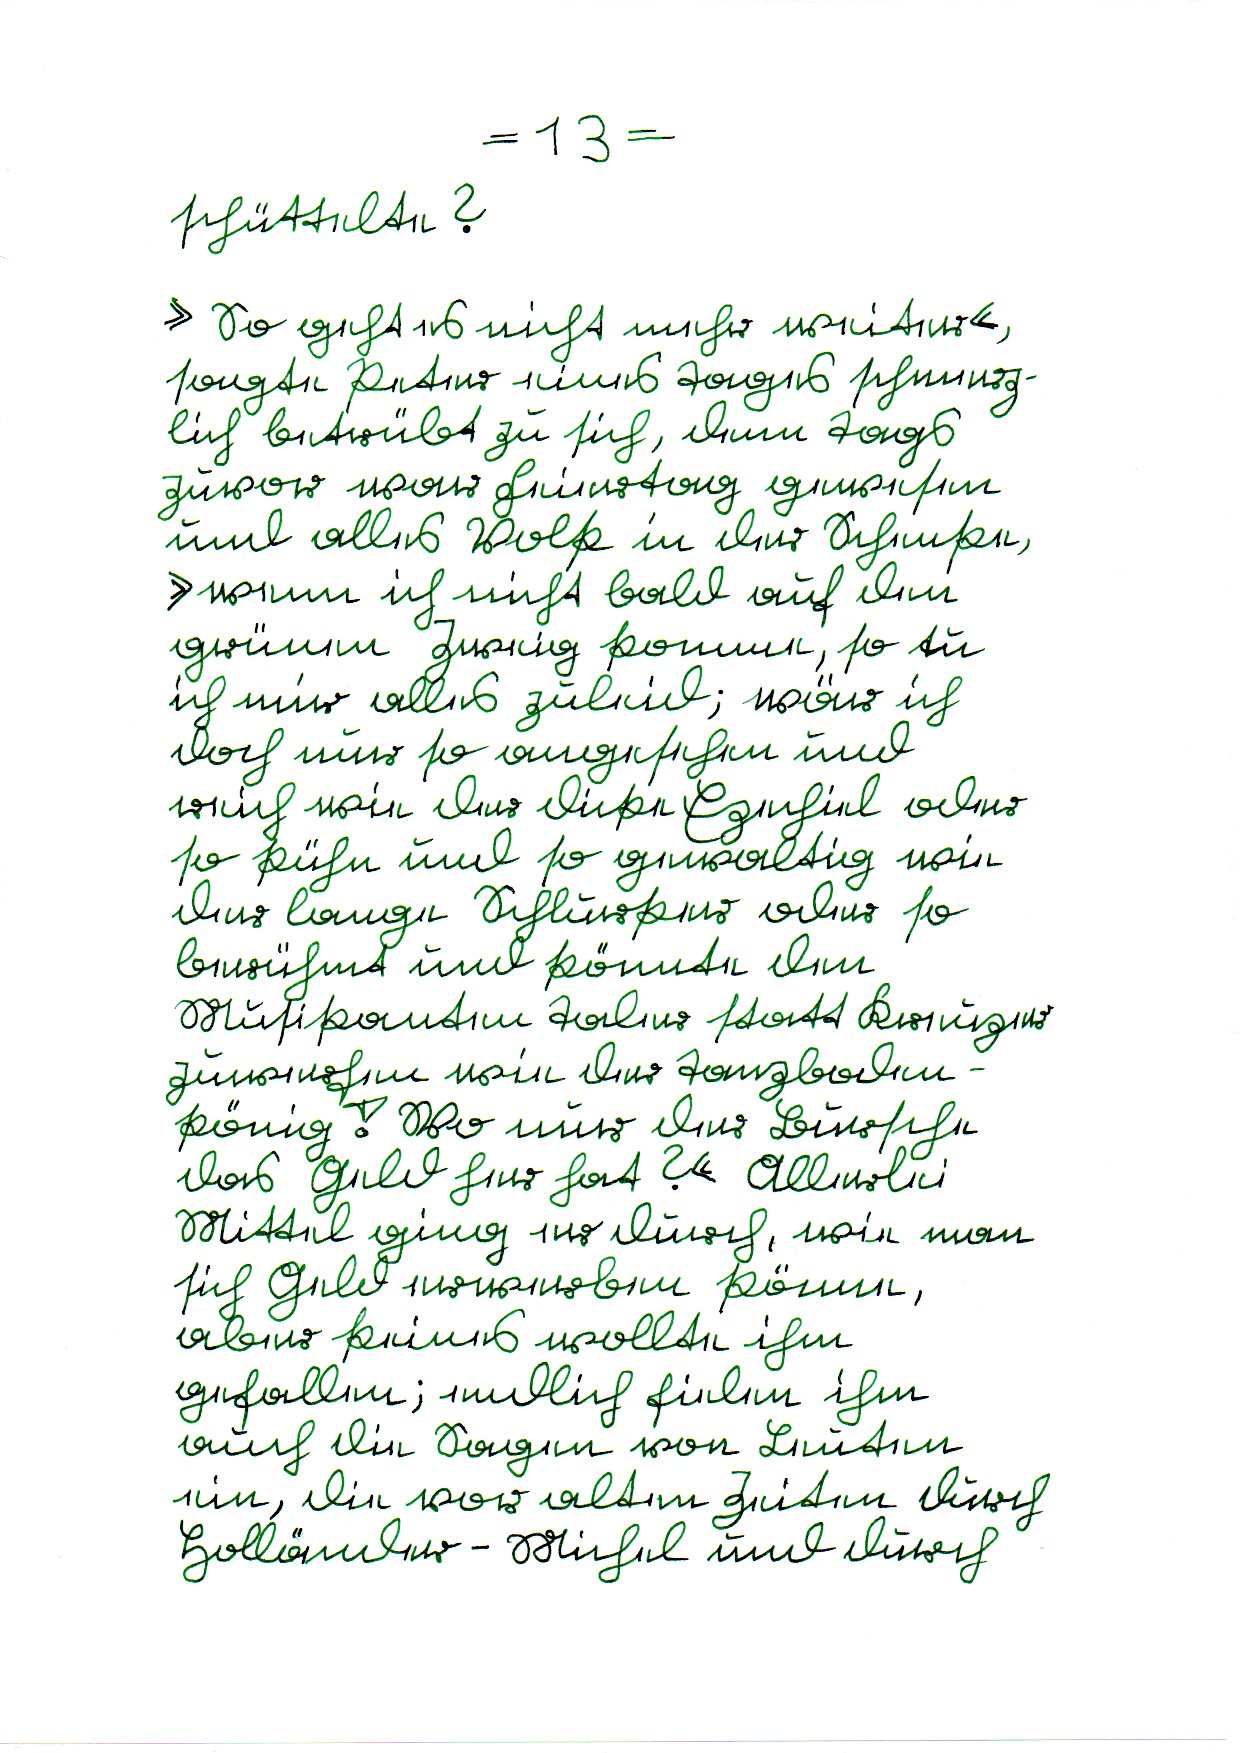 = 13 =
schüttelte?
»So geht es nicht mehr weiter«,
sagte Peter eines Tages schmerz-
lich betrübt zu sich, denn tags
zuvor war Feiertag gewesen
und alles Volk in der Schenke,
»wenn ich nicht bald auf den
grünen Zweig komme, so tu
ich mir alles zuleid; wär ich
doch nur so angesehen und
reich wie der dicke Ezechiel oder
so kühn und so gewaltig wie
der lange Schlurker oder so
berühmt und könnte den
Musikanten Taler statt Kreuzer
zuwerfen wie der Tanzboden-
könig! Wo nur der Bursche
das Geld her hat?« Allerlei
Mittel ging er durch, wie man
sich Geld erwerben könne,
aber keines wollte ihm
gefallen; endlich fielen ihm
auch die Sagen von Leuten
ein, die vor alten Zeiten durch
Holländer-Michel und durch